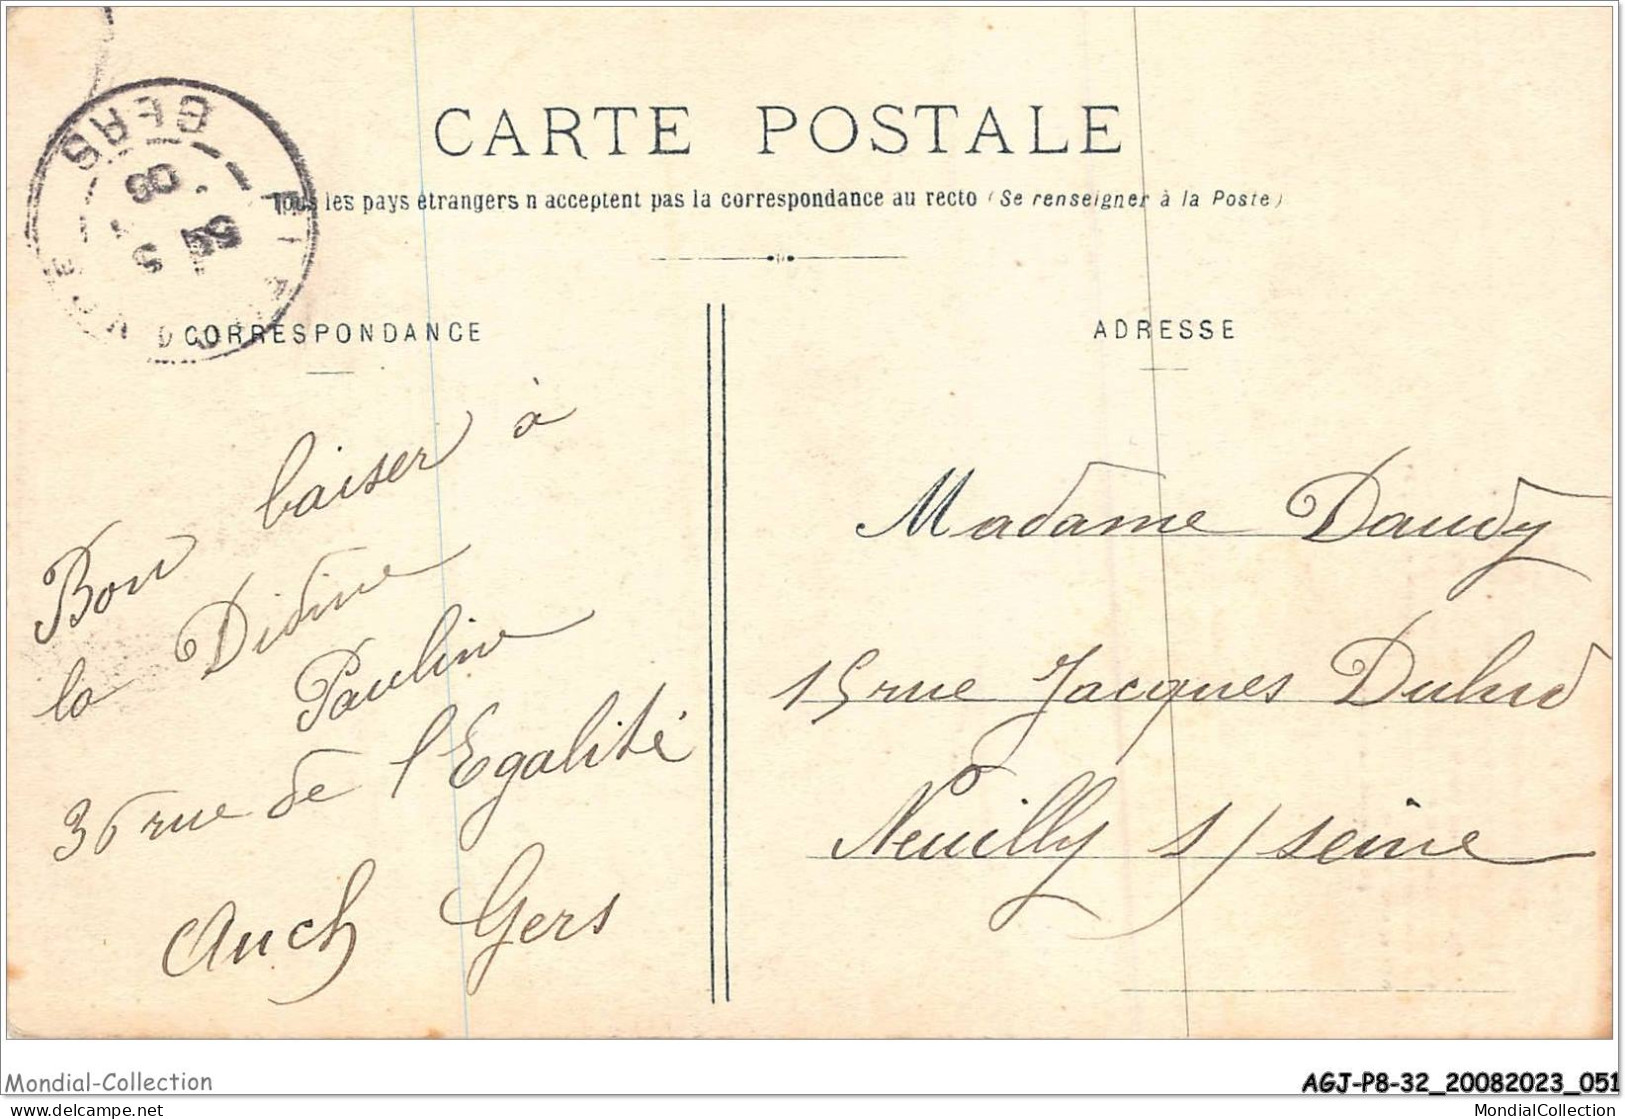 CARTE POSTALE
Tous les pays étrangers n'acceptent pas la correspondance au recto (Se renseigner à la Poste)
GERS
08
CORRESPONDANCE
Bon baiser à
la Didine
Pauline
36 rue de l'Egalité
Auch Gers
ADRESSE
Madame Daudy
15 rue Jacques Dulud
Neuilly s/ seine
Mondial-Collection
AGJ-P8-32_20082023_051
www.delcampe.net
MondialCollection